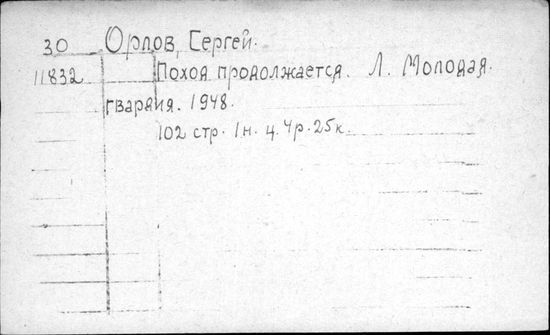 30 Орлов, Сергей.
11832 Поход продолжается. Л. Молодая.
гвардия. 1948.
102 стр. 1н. ц. 4р. 25к.